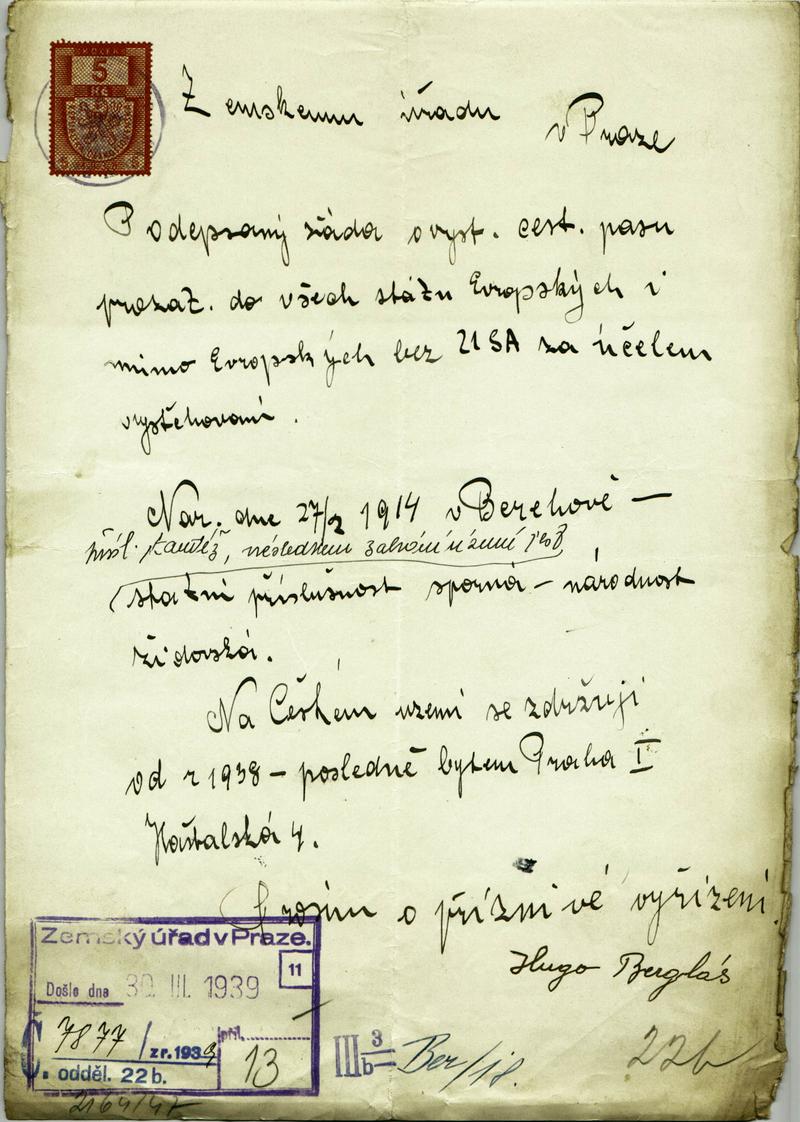 KOLEK
5
Kč
Zemskemu úřadu
v Praze
Podepsaný žáda o vyst. cest. pasu
prozat. do všech státu Evropských i
mimo Evropských bez USA za účelem
vystěhovaní.
Nar. dne 27/2 1914 v Berehově —
přísl. tamtéž, následkem zabrání území jest
statní příslušnost sporná – národnost
židovská.
Na Českém uzemi se zdržuji
od r 1938 – posledně bytem Praha I
Haštalská 4.
Prosim o příznivé vyřízení.
Hugo Bergláš
Zemský úřad v Praze.
11
Došle dne 30. III. 1939
Č. 7877 / z r. 1939
příl. 13
odděl. 22 b.
III 3 b = Ber/18.
22b